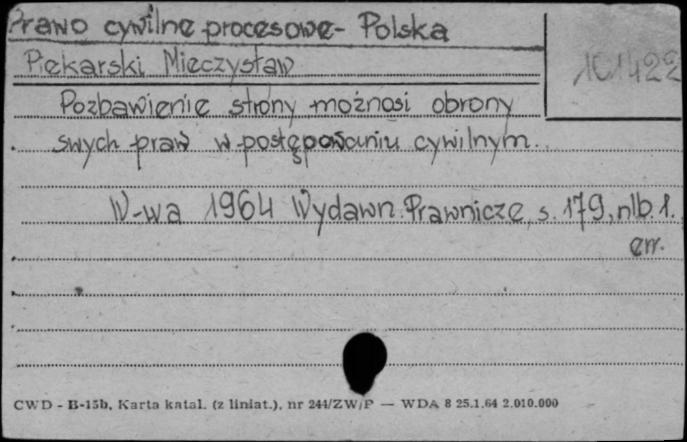 Prawo cywilne procesowe - Polska
Piekarski Mieczysław
101422
Pozbawienie strony możnosi obrony
swych praw w postępowaniu cywilnym.
W-wa 1964 Wydawn. Prawnicze, s. 179, nlb. 1.
err.
CWD - B-15b, Karta katal. (z liniat.), nr 244/ZW/P — WDA 8 25.1.64 2.010.000